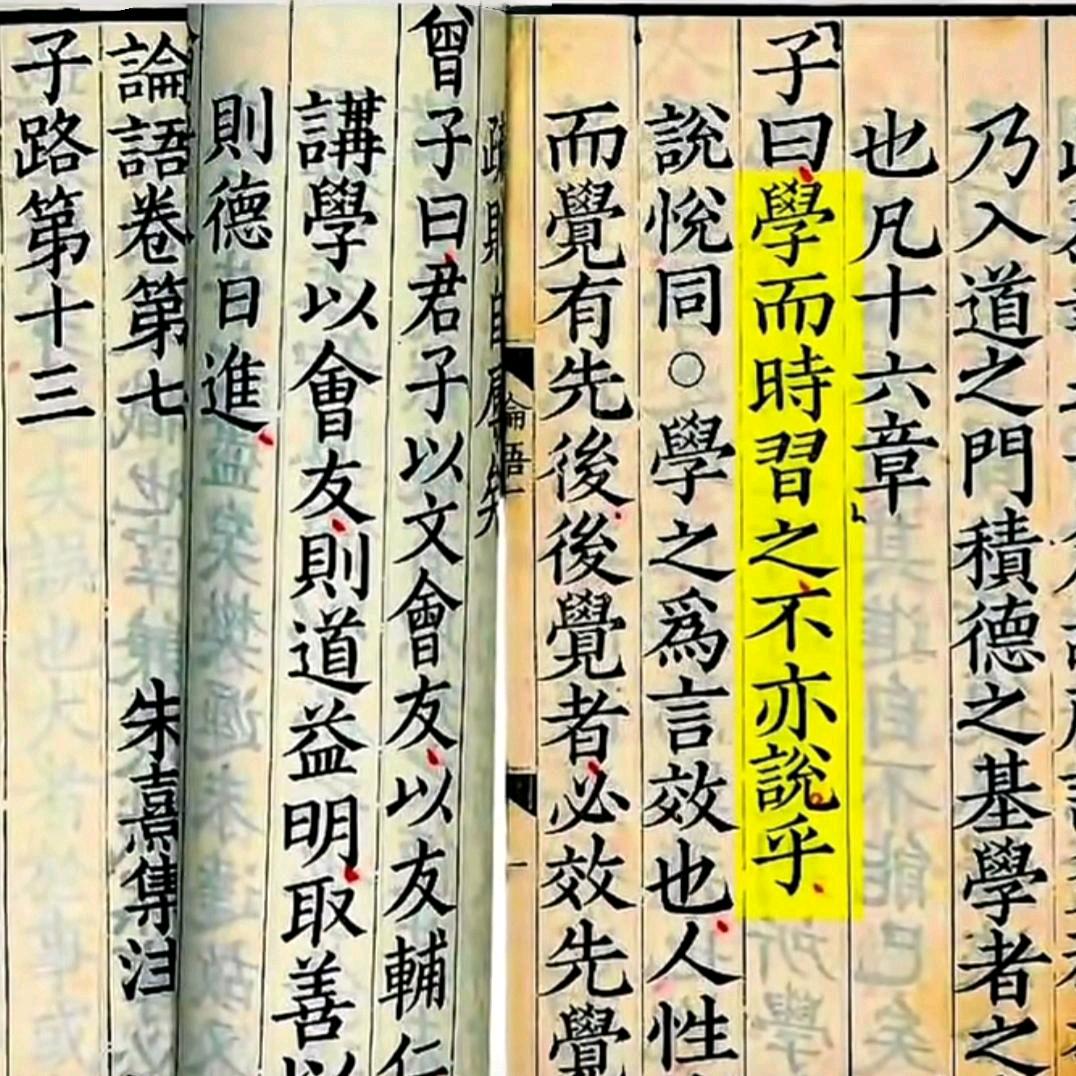 乃入道之門積德之基學者之
也凡十六章
子曰學而時習之不亦說乎
說悅同○學之爲言效也人性
而覺有先後後覺者必效先覺
論語 一
曾子曰君子以文會友以友輔仁
講學以會友則道益明取善以
則德日進
論語卷第七 朱熹集注
子路第十三